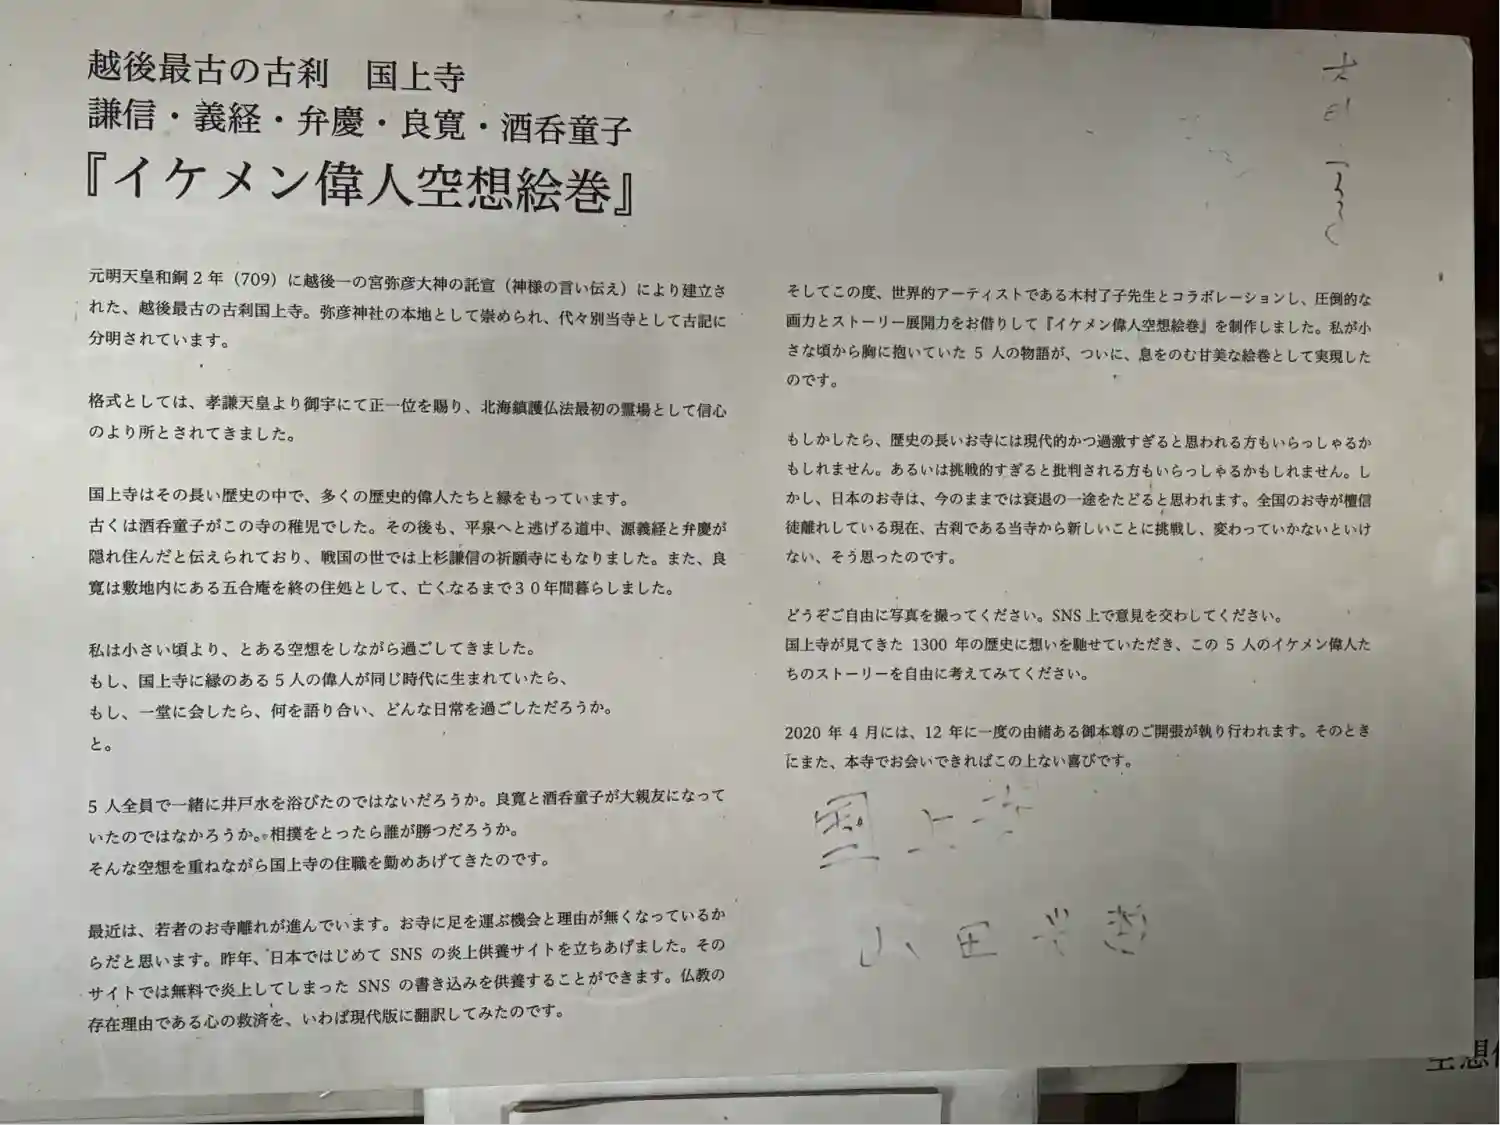 越後最古の古刹　国上寺
謙信・義経・弁慶・良寛・酒呑童子
『イケメン偉人空想絵巻』
元明天皇和銅２年（709）に越後一の宮弥彦大神の託宣（神様の言い伝え）により建立さ
れた、越後最古の古刹国上寺。弥彦神社の本地として崇められ、代々別当寺として古記に
分明されています。
格式としては、孝謙天皇より御宇にて正一位を賜り、北海鎮護仏法最初の霊場として信心
のより所とされてきました。
国上寺はその長い歴史の中で、多くの歴史的偉人たちと縁をもっています。
古くは酒呑童子がこの寺の稚児でした。その後も、平泉へと逃げる道中、源義経と弁慶が
隠れ住んだと伝えられており、戦国の世では上杉謙信の祈願寺にもなりました。また、良
寛は敷地内にある五合庵を終の住処として、亡くなるまで３０年間暮らしました。
私は小さい頃より、とある空想をしながら過ごしてきました。
もし、国上寺に縁のある５人の偉人が同じ時代に生まれていたら、
もし、一堂に会したら、何を語り合い、どんな日常を過ごしただろうか。
と。
5 人全員で一緒に井戸水を浴びたのではないだろうか。良寛と酒呑童子が大親友になって
いたのではなかろうか。相撲をとったら誰が勝つだろうか。
そんな空想を重ねながら国上寺の住職を勤めあげてきたのです。
最近は、若者のお寺離れが進んでいます。お寺に足を運ぶ機会と理由が無くなっているか
らだと思います。昨年、日本ではじめて SNS の炎上供養サイトを立ちあげました。その
サイトでは無料で炎上してしまった SNS の書き込みを供養することができます。仏教の
存在理由である心の救済を、いわば現代版に翻訳してみたのです。
そしてこの度、世界的アーティストである木村了子先生とコラボレーションし、圧倒的な
画力とストーリー展開力をお借りして『イケメン偉人空想絵巻』を制作しました。私が小
さな頃から胸に抱いていた 5 人の物語が、ついに、息をのむ甘美な絵巻として実現した
のです。
もしかしたら、歴史の長いお寺には現代的かつ過激すぎると思われる方もいらっしゃるか
もしれません。あるいは挑戦的すぎると批判される方もいらっしゃるかもしれません。し
かし、日本のお寺は、今のままでは衰退の一途をたどると思われます。全国のお寺が檀信
徒離れしている現在、古刹である当寺から新しいことに挑戦し、変わっていかないといけ
ない、そう思ったのです。
どうぞご自由に写真を撮ってください。SNS 上で意見を交わしてください。
国上寺が見てきた 1300 年の歴史に想いを馳せていただき、この 5 人のイケメン偉人た
ちのストーリーを自由に考えてみてください。
2020 年 4 月には、12 年に一度の由緒ある御本尊のご開張が執り行われます。そのとき
にまた、本寺でお会いできればこの上ない喜びです。
国上寺
山田光哲
空想